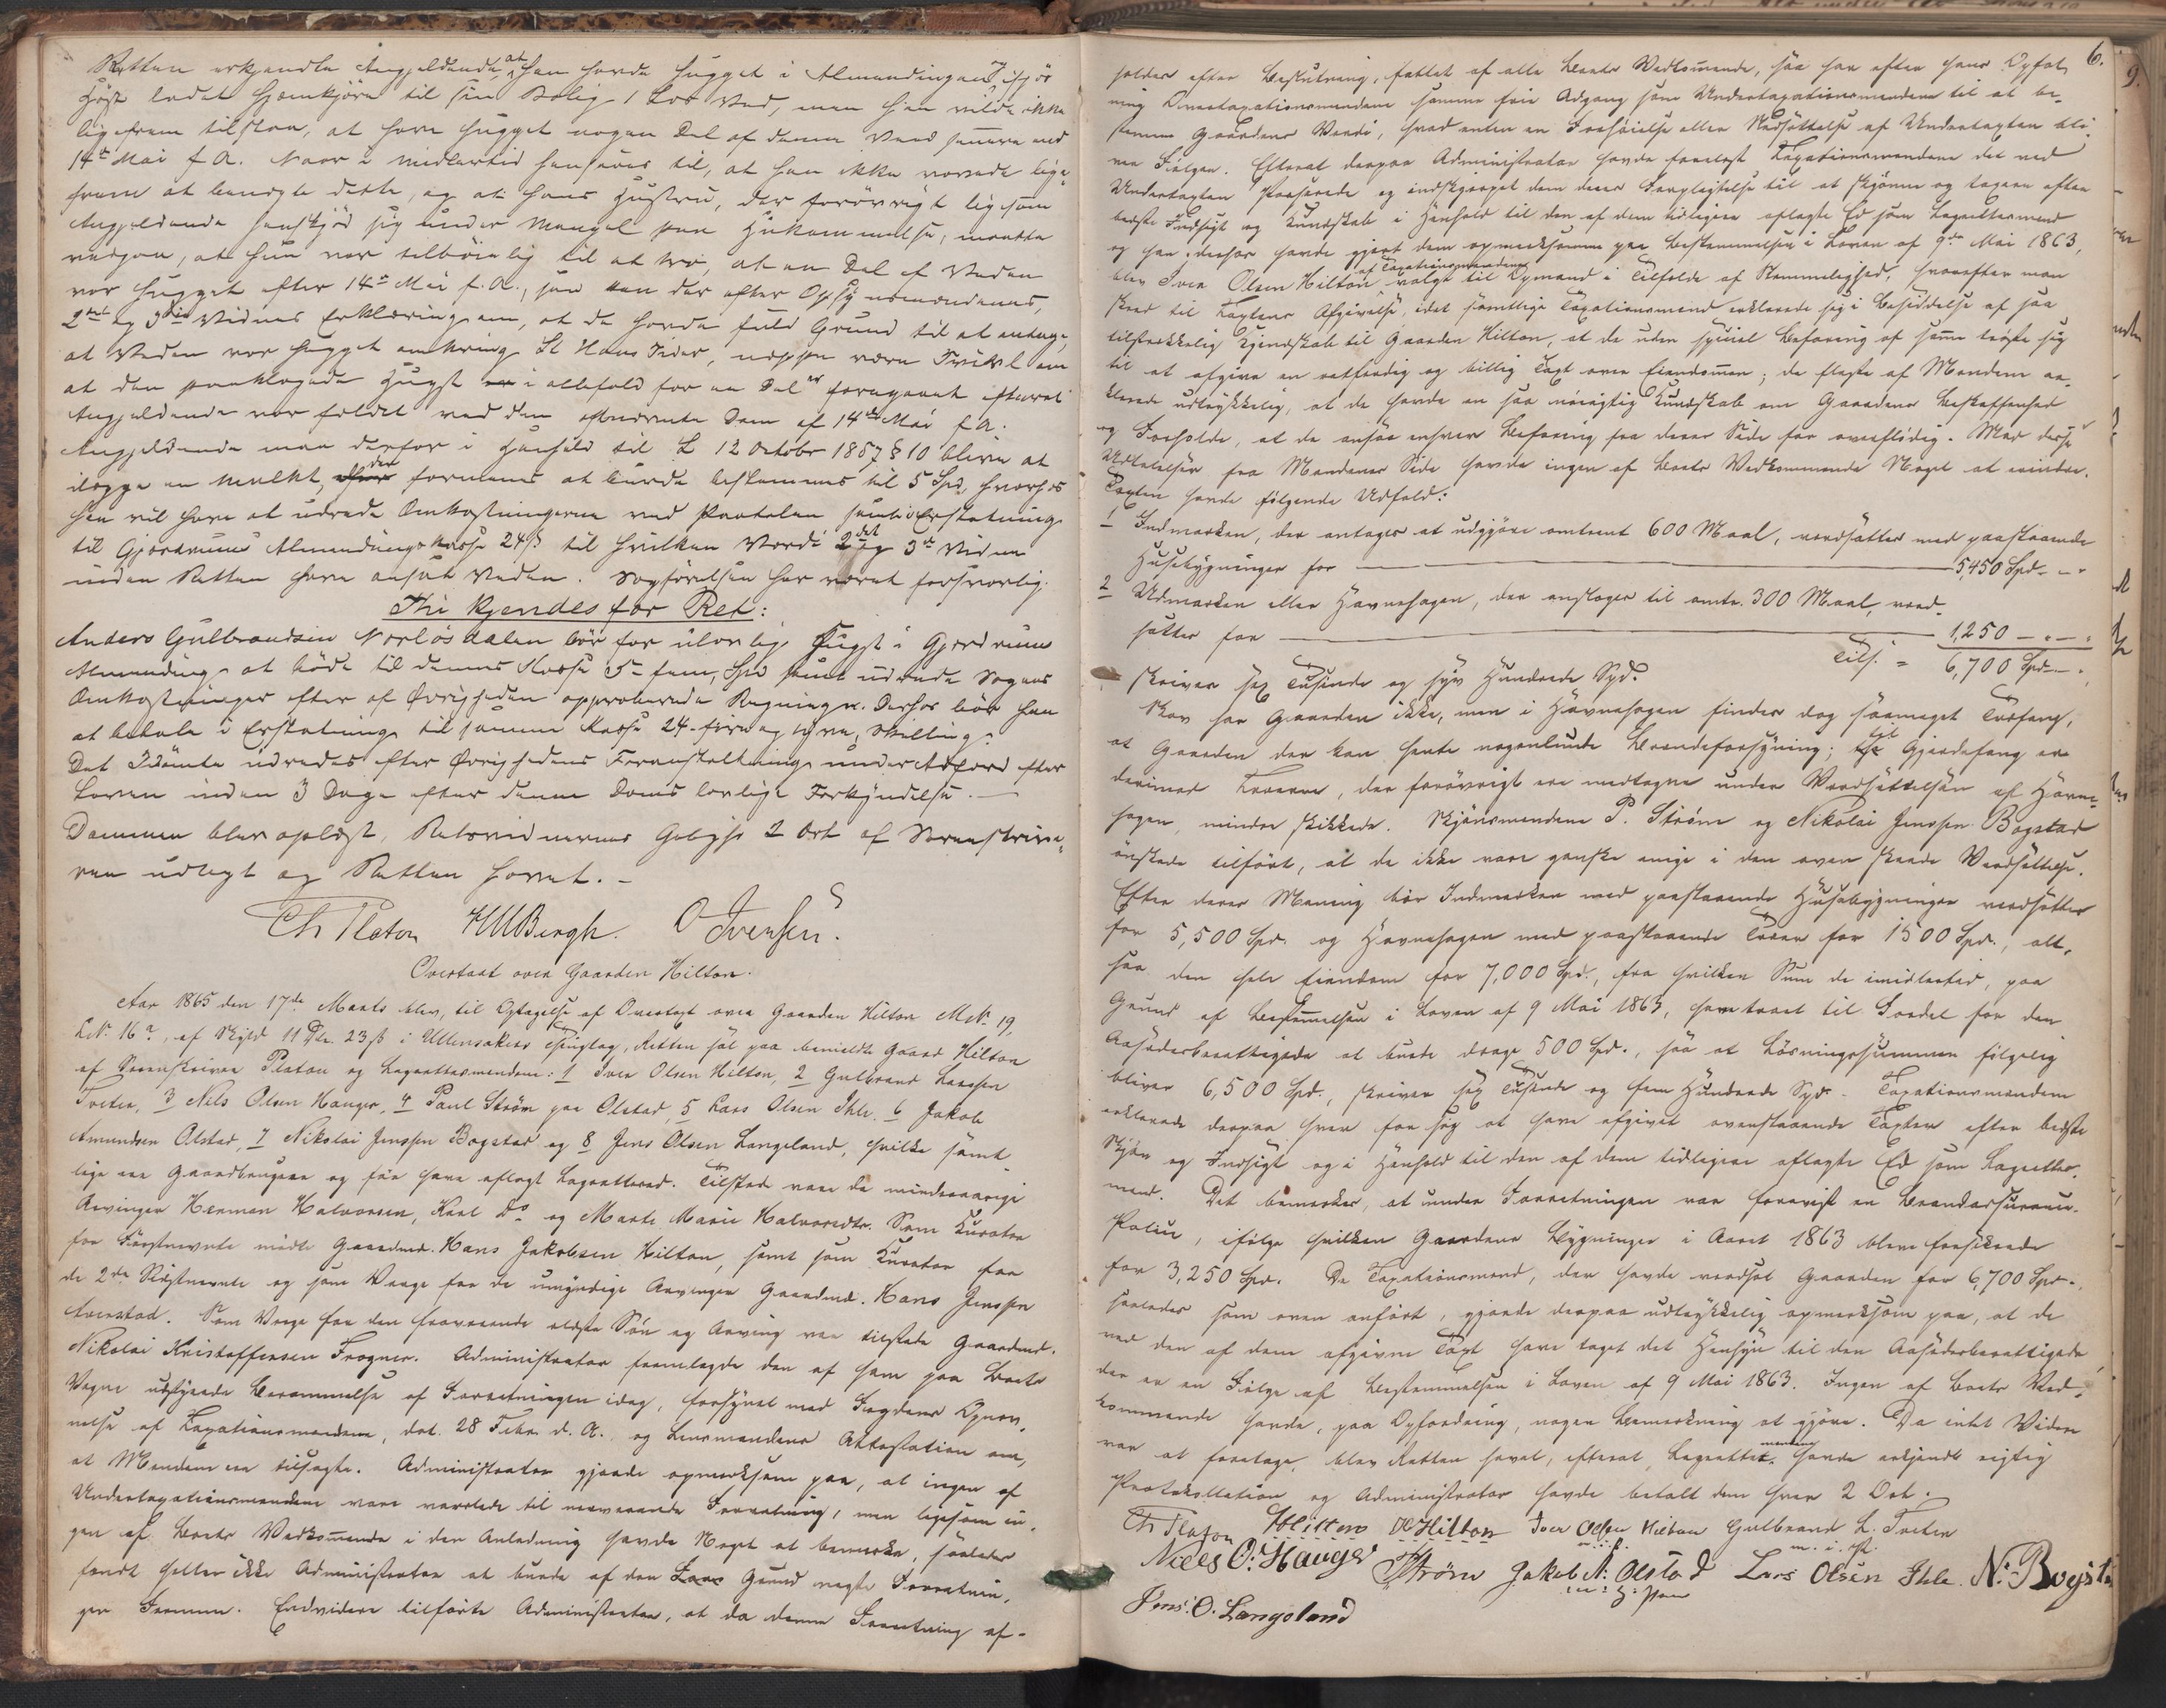 Retten erkjendte Angjeldende, at han havde hugget i Almendingen og ifjor
Høst ladet hjemkjøre til sin Bolig 1 Læs Ved, men han vilde ikke
ligefrem tilstaa, at have hugget nogen Del af denne Veed senere end
14de Mai f. A. Naar i midlertid henføres til, at han ikke vovede lige-
frem at benegte dette, og at hans Hustru, der forøvrigt ligesom
Angjeldende henskjød sig under Mangel paa Hukommelse, maatte
vedgaa, at hun var tilbøielig til at tro, at en Del af Veden
var hugget efter 14de Mai f. A., saa kan der efter Opsynsmændenes,
2det og 3die Vidnes Erklæring om, at de havde fuld Grund til at antage,
at Veden var hugget omkring St Hans Tider, neppe være Tvivl om
at den paaklagede Hugst er i allefald for en Del er foregaaet efterat
Angjeldende var fældet ved den Dom af 14de Mai f. A.
Angjeldende maa derfor i Henhold til L 12 October 1857 § 10 blive at
ilægge en Mulkt, der formenes at burde bestemmes til 5 Spd, hvorhos
han vil have at udrede Omkostningerne ved Paatalen samt i Erstatning
til Gjerdrums Almendings kasse 24 ß til hvilken Værdi 2det og 3de Vidne
inden Retten have ansat Veden. Sagførelsen har været forsvarlig.
Thi kjendes for Ret:
Anders Gulbrandsen Nordösdalen bør for ulovlig Hugst i Gjerdrum
Almending at bøde til dennes Kasse 5 - fem, Spd samt udrede Sagens
Omkostninger efter af Øvrigheden approberede Regninger. Derhos bør han
at betale i Erstatning til samme Kasse 24 - fire og tyve, Skilling.
Det Idømte udredes efter Øvrighedens Foranstaltning under Adfærd efter
Loven inden 3 Dage efter denne Doms lovlige Forkyndelse. —
Dommen blev oplæst, Retsvidnernes Gebyhr 2 Ort af Sorenskrive-
ren udlagt og Retten hævet. –
Ch Platou HMBergh. O Iversen.
Overtaxt over Gaarden Hilton.
Aar 1865 den 17de Marts blev, til Optagelse af Overtaxt over Gaarden Hilton M.N. 19,
L.N. 16a, af Skyld 11 Dlr. 23 ß i Ullensakers Thinglag, Retten sat paa bemeldte Gaard Hilton
af Sorenskriver Platou og Lagrettesmendene: 1 Iver Olsen Hilton, 2 Gulbrand Larssen
Tveter, 3 Nils Olsen Hauger, 4 Paul Strøm paa Olstad, 5 Lars Olsen Ihle, 6 Jakob
Amundsen Olstad, 7 Nikolai Jenssen Bogstad og 8 Jens Olsen Langeland, hvilke samt-
lige ere Gaardbrugere og før have aflagt Lagretteed. Tilstede vare de mindreaarige
Arvinger Herman Halvorsen, Karl Do og Marte Marie Halvorsdtr. Som Kurator
for Førstnævnte mødte Gaardmd. Hans Jakobsen Hilton, samt som Kurator for
de 2de Sidstnævnte og som Verge for de umyndige Arvinger Gaardmd. Hans Jenssen
Averstad. Som Verge for den fraværende eldste Søn og Arving var tilstede Gaardmd.
Nikolai Kristoffersen Frogner. Administrator fremlagde den af ham paa Boets
Vegne udstedte Berammelse af Forretningen idag, forsynet med Fogdens Opnev-
nelse af Taxationsmændene, dat. 28 Febr. d. A., og Lensmandens Attestation om,
at Mændene ere tilsagte. Administrator gjorde opmærksom paa, at ingen af
Undertaxationsmændene vare varslede til nærværende Forretning, men ligesom in-
gen af Boets Vedkommende i den Anledning havde Noget at bemerke, saaledes
fandt heller ikke Administrator at burde af den Grund negte Forretnin-
gen Fremme. Endvidere tilførte Administrator, at da denne Forretning af-
6.
holdes efter Beslutning, fattet af alle Boets Vedkommende, saa har efter hans Opfat-
ning Overtaxationsmændene samme frie Adgang som Undertaxationsmændene til at be-
stemme Gaardens Verdi, hvad enten en Forhøielse eller Nedsættelse af Undertaxten bli-
ver Følgen. Efterat derpaa Administrator havde foreholdt Taxationsmændene det ved
Undertaxten Passerede og indskjærpet dem deres Forpligtelse til at skjønne og taxere efter
bedste Indsigt og Kundskab i Henhold til den af dem tidligere aflagte Ed som Lagrettesmænd
og han derhos havde gjort dem opmærksomme paa Bestemmelsen i Loven af 9de Mai 1863,
blev Iver Olsen Hilton af Taxationsmændene valgt til Opmand i Tilfælde af Stemmelighed, hvorefter man
skred til Taxtens Afgivelse, idet samtlige Taxationsmænd erklærede sig i Besiddelse af saa
tilstrækkelig Kjendskab til Gaarden Hilton, at de uden speciel Befaring af samme trøste sig
til at afgive en retfærdig og billig Taxt over Eiendommen; de fleste af Mændene er-
klærede udtrykkelig, at de havde en saa nøiagtig Kundskab om Gaardens Beskaffenhed
og Forholde, at de ansaa enhver Befaring fra deres Side for overflødig. Mod disse
Udtalelser fra Mændenes Side havde ingen af Boets Vedkommende Noget at erindre.
Taxten havde følgende Udfald:
1 Indmarken, der antages at udgjøre omtrent 600 Maal, værdsættes med paastaaende
Husebygninger for — 5,450 Spd. - -
2 Udmarken eller Havnehagen, der anslaaes til omtr. 300 Maal, værd-
sættes for — 1,250 - . - .
Tils. = 6,700 Spd. - -
skriver sex Tusinde og syv Hundrede Spd.
Skov har Gaarden ikke, men i Havnehagen findes dog saameget Træfang,
at Gaarden der kan hente nogenlunde Brændeforsyning; til Gjerdefang er
derimod Træerne, der forøvrigt ere medtagne under Verdsættelsen af Havne-
hagen, mindre skikkede. Skjønsmændene P. Strøm og Nikolai Jenssen Bogstad
ønskede tilført, at de ikke vare ganske enige i den oven skeede Verdsættelse.
Efter deres Mening bør Indmarken med paastaaende Husebygninger verdsættes
for 5,500 Spd. og Havnehagen med paastaaende Træer for 1500 Spd., alt-
saa den hele Eiendom for 7,000 Spd., fra hvilken Sum de imidlertid, paa
Grund af Bestemmelsen i Loven af 9 Mai 1863, have troet til Fordel for den
Aasædesberettigede at burde drage 500 Spd., saa at Løsningssummen følgelig
bliver 6,500 Spd., skriver sex Tusinde og fem Hundrede Spd. Taxationsmændene
erklærede derpaa hver for sig at have afgivet ovenstaaende Taxter efter bedste
Skjøn og Indsigt og i Henhold til den af dem tidligere aflagte Ed som Lagrettes-
mænd. Det bemerkes, at under Forretningen var forevist en Brandassurance-
Police, ifølge hvilken Gaardens Bygninger i Aaret 1863 bleve forsikrede
for 3,250 Spd. De Taxationsmænd, der havde verdsat Gaarden for 6,700 Spd.,
saaledes som oven anført, gjorde derpaa udtrykkelig opmærksom paa, at de
ved den af dem afgivne Taxt have taget det Hensyn til den Aasædesberettigede,
der er en Følge af Bestemmelsen i Loven af 9 Mai 1863. Ingen af Boets Ved-
kommende havde, paa Opfordring, nogen Bemerkning at gjøre. Da intet Videre
var at foretage, blev Retten hævet, efterat Lagrettesmændene havde erkjendt rigtig
Protokollation og Administrator havde betalt dem hver 2 Ort.
Ch Platou Hilton Hilton Iver Olsen Hilton Gulbrand L. Tveter
m. i. P.
Niels O. Hauger Strøm Jakob A. Olstad Lars Olsen Ihle. N. Bogsta
Jens. O. Langeland